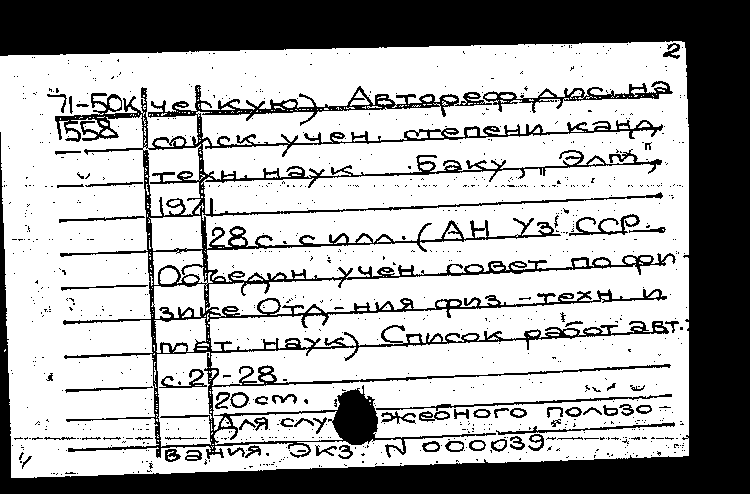 2
71-50к ческую). Автореф. дис. на
1558 соиск. учен. степени канд.
техн. наук. Баку, "Элм",
1971.
28 с. с илл. (АН Уз ССР.
Объедин. учен. совет по фи-
зике Отд-ния физ.-техн. и
мат. наук) Список работ авт.:
с. 27-28.
20 см.
Для служебного пользо-
вания. Экз. N 000039.